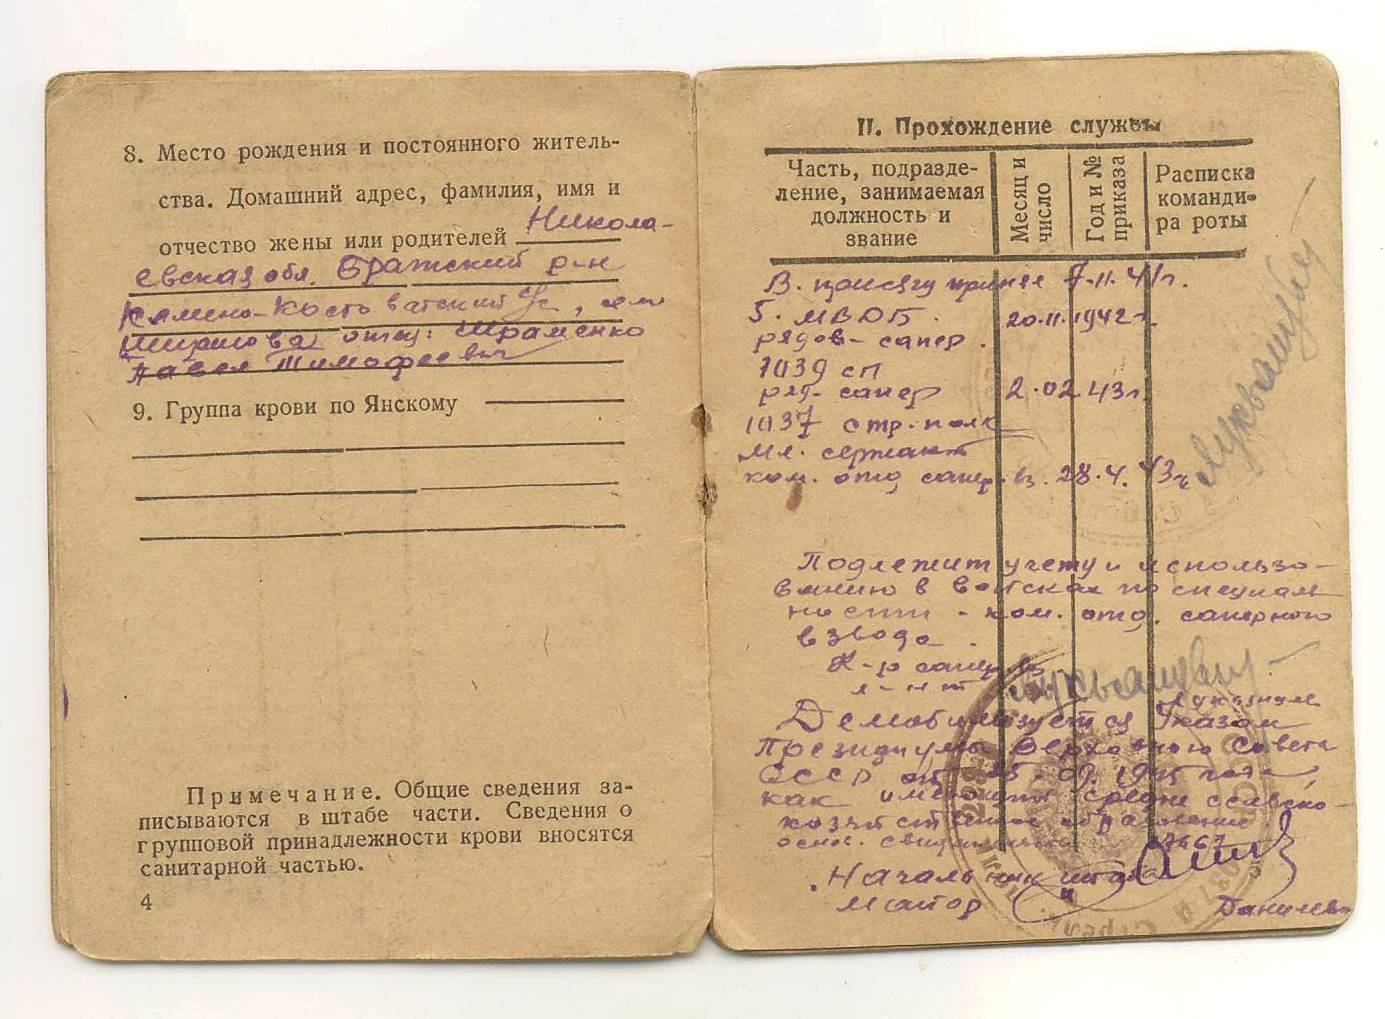 8. Место рождения и постоянного житель-
ства. Домашний адрес, фамилия, имя и
отчество жены или родителей Никола-
евская обл. Братский р-н
Камено-Костоватский с/с, село
отец: Мраменко
Павел Тимофеевич
9. Группа крови по Янскому
Примечание. Общие сведения за-
писываются в штабе части. Сведения о
групповой принадлежности крови вносятся
санитарной частью.
4
II. Прохождение службы
Часть, подразде-
ление, занимаемая
должность и
звание
Месяц и
число
Год и №
приказа
Расписка
команди-
ра роты
В. присягу принял 7.11.41г.
5. МВОБ.
рядов-сапер. 20.11.1942г.
1039 сп
ряд. сапер 2.02 43г.
1037 стр. полк
мл. сержант
ком. отд сапер. вз. 28.4.43г
Лукьянцевич
Подлежит учету и использо-
ванию в войсках по специаль
ности - ком. отд. саперного
взвода.
К-р сапер. вз
л-нт
Демобилизуется Указом
Президиума Верховного Совета
СССР от 25.09.1945 года
как имеющий средне сельско-
хозяйственное образование
основ. свидетельство
Начальник штаба
Майор